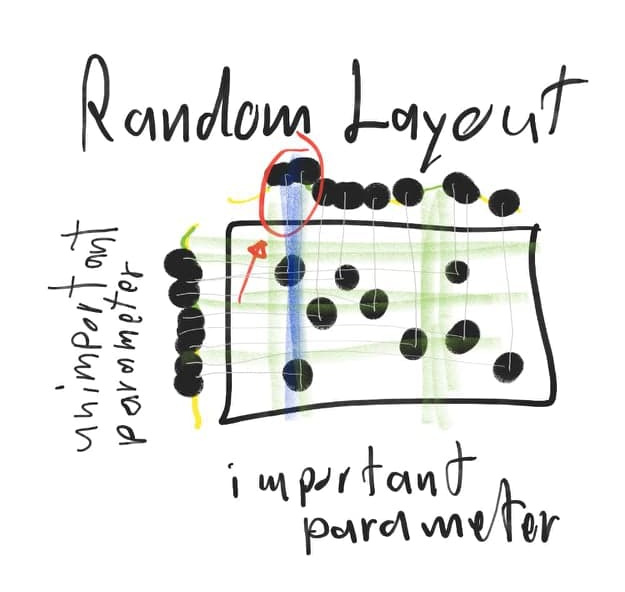 Random Layout
unimportant
parameter
important
parameter